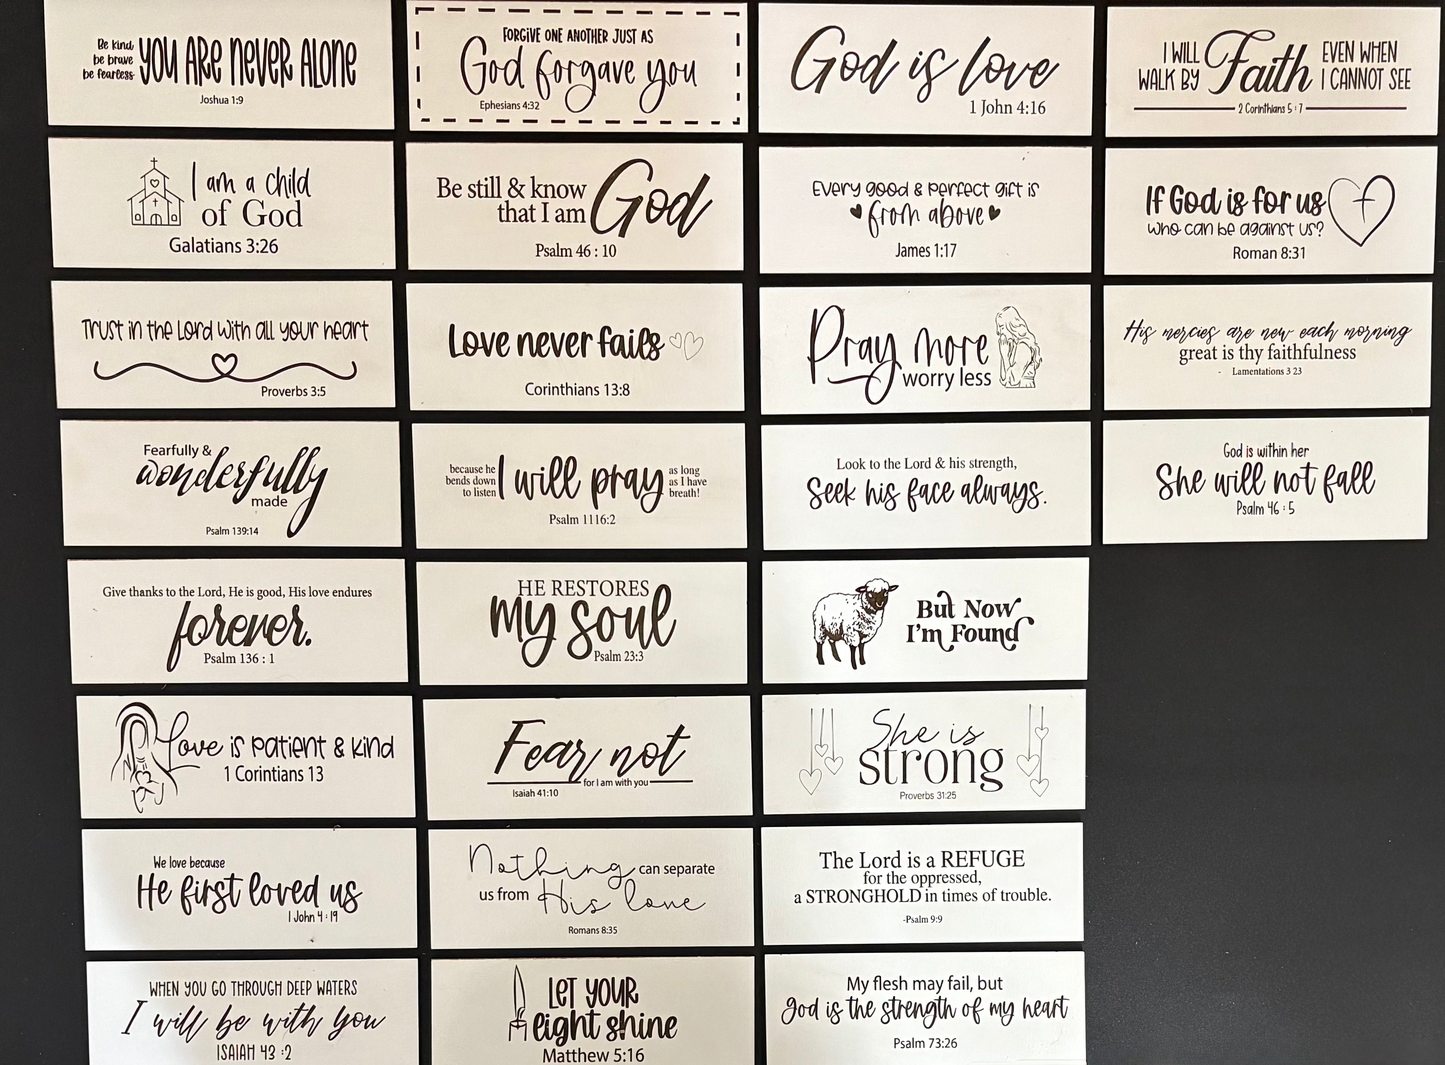 Be kind
be brave
be fearless
YOU ARE NEVER ALONE
Joshua 1:9
FORGIVE ONE ANOTHER JUST AS
God forgave you
Ephesians 4:32
God is love
1 John 4:16
I WILL
WALK BY
Faith
EVEN WHEN
I CANNOT SEE
2 Corinthians 5:7
I am a child
of God
Galatians 3:26
Be still & know
that I am
God
Psalm 46 : 10
Every good & perfect gift is
from above
James 1:17
If God is for us
who can be against us?
Roman 8:31
Trust in the Lord with all your heart
Proverbs 3:5
Love never fails
Corinthians 13:8
Pray more
worry less
His mercies are new each morning
great is thy faithfulness
- Lamentations 3 23
Fearfully &
wonderfully
made
Psalm 139:14
because he
bends down
to listen
I will pray
as long
as I have
breath!
Psalm 1116:2
Look to the Lord & his strength,
Seek his face always.
God is within her
She will not fall
Psalm 46 : 5
Give thanks to the Lord, He is good, His love endures
forever.
Psalm 136 : 1
HE RESTORES
my soul
Psalm 23:3
But Now
I'm Found
Love is patient & kind
1 Corintians 13
Fear not
for I am with you
Isaiah 41:10
She is
strong
Proverbs 31:25
We love because
He first loved us
1 John 4 : 19
Nothing can separate
us from His love
Romans 8:35
The Lord is a REFUGE
for the oppressed,
a STRONGHOLD in times of trouble.
-Psalm 9:9
WHEN YOU GO THROUGH DEEP WATERS
I will be with you
ISAIAH 43 :2
LET YOUR
light shine
Matthew 5:16
My flesh may fail, but
god is the strength of my heart
Psalm 73:26